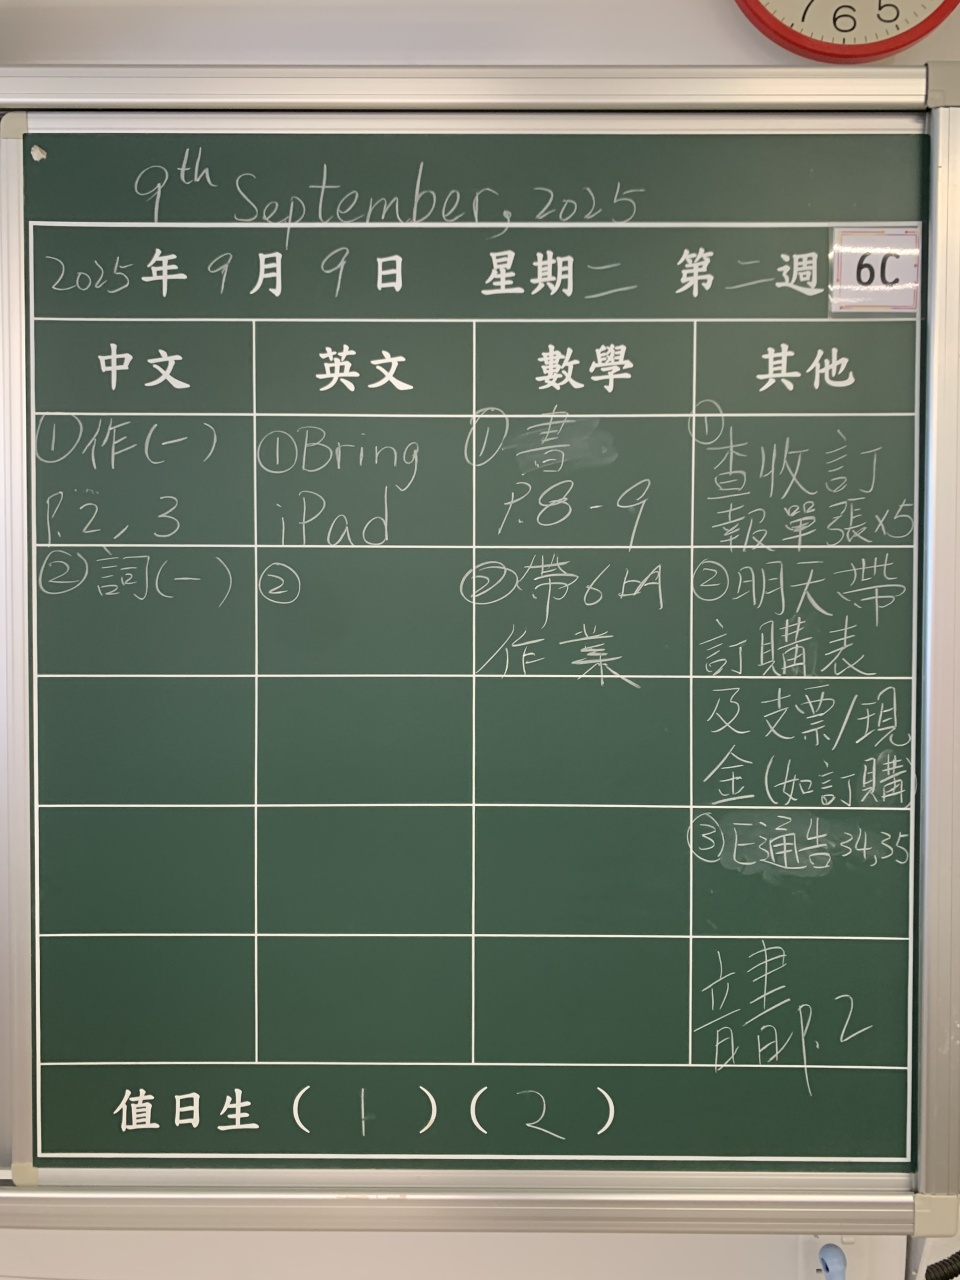 7 6 5
9th September, 2025
2025年9月9日 星期二 第二週 6C
中文 英文 數學 其他
①作(一)
P.2, 3
②詞(一)
①Bring
iPad
②
①書
P.8-9
②帶6bA
作業
①
查收訂
報單張x5
②明天帶
訂購表
及支票/現
金(如訂購)
③E通告34,35
音書P.2
值日生(1)(2)